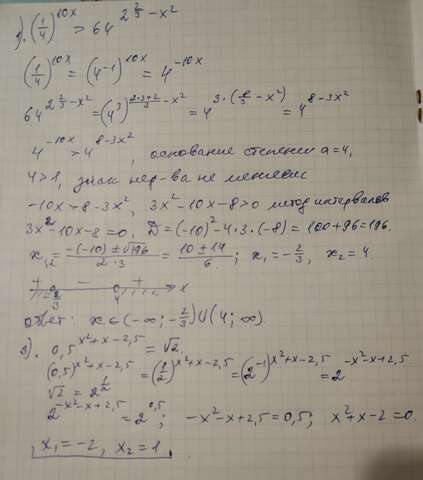 1). (1/4)^10x > 64^(2 2/3 - x²)
(1/4)^10x = (4^-1)^10x = 4^-10x
64^(2 2/3 - x²) = (4³)^((2·3+2)/3 - x²) = 4^(3·(8/3 - x²)) = 4^(8-3x²)
4^-10x > 4^(8-3x²), основание степени a=4,
4>1, знак нер-ва не меняем
-10x > 8-3x², 3x²-10x-8>0 метод интервалов
3x²-10x-8=0. D=(-10)²-4·3·(-8) = 100+96=196.
x₁,₂ = (-(-10) ± √196)/(2·3) = (10±14)/6; x₁=-2/3, x₂=4.
+ - + -2/3 4 x
ответ: x ∈ (-∞; -2/3) ∪ (4; ∞).
2). 0,5^(x²+x-2,5) = √2.
(0,5)^(x²+x-2,5) = (1/2)^(x²+x-2,5) = (2^-1)^(x²+x-2,5) = 2^(-x²-x+2,5)
√2 = 2^(1/2)
2^(-x²-x+2,5) = 2^0,5; -x²-x+2,5=0,5; x²+x-2=0.
x₁=-2, x₂=1.